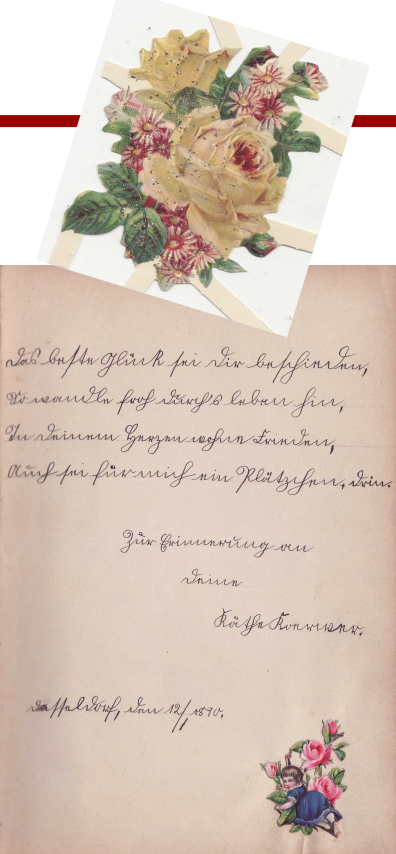 Das beste Glück sei Dir beschieden,
So wandle froh durch's Leben hin,
In Deinem Herzen wohne Frieden,
Auch sei für mich ein Plätzchen drin.
Zur Erinnerung an
Deine
Käthe Koerwer.
Düsseldorf, den 12/1 1890.